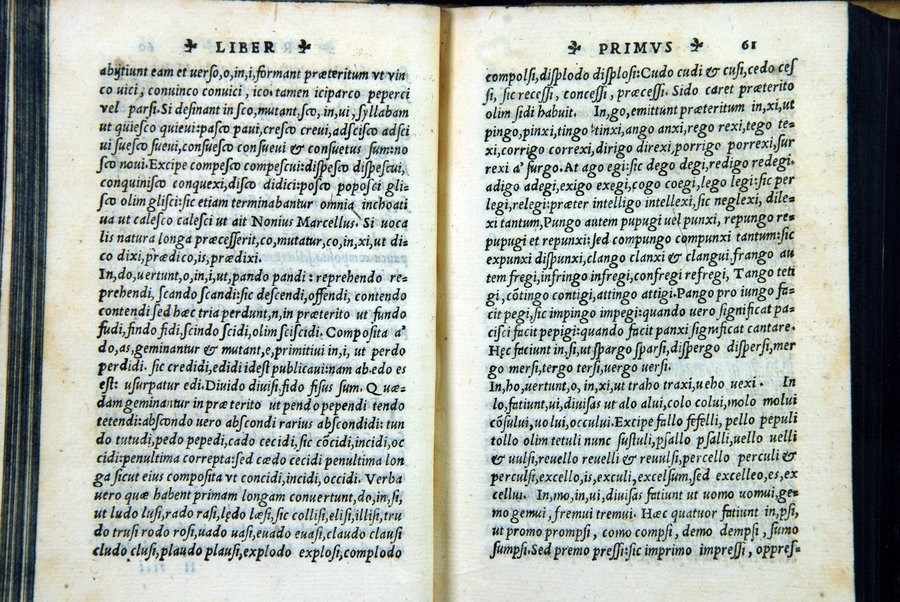 ❧ LIBER ❧
abijtiunt eam et uerso,o,in,i,formant præteritum vt vin
co uici, conuinco conuici, ico.tamen iciparco peperci
vel parsi.Si desinant in sco,mutant,sco,in,ui, syllabam
ut quiesco quieui:pasco paui,cresco creui,adscisco adsci
ui suesco sueui,consuesco consueui & consuetus sum:no
sco noui.Excipe compesco compescui:dispesco dispescui,
conquinisco conquexi,disco didici:posco poposci gli-
sco olim glisci:sic etiam terminabantur omnia inchoati
ua ut calesco calesci ut ait Nonius Marcellus. Si uoca
lis natura longa præcesserit,co,mutatur,co,in,xi,ut di-
co dixi,prædico,is,prædixi.
In,do,uertunt,o,in,i,ut,pando pandi: reprehendo re-
prehendi, scando scandi:sic descendi,offendi, contendo
contendi sed hæc tria perdunt,n,in præterito ut fundo
fudi,findo fidi,scindo scidi,olim sciscidi. Composita a'
do,as,geminantur & mutant,e,primitiui in,i, ut perdo
perdidi. sic credidi,edidi idest publicaui:nam ab.edo es
est: usurpatur edi.Diuido diuisi.fido fisus sum. Quæ-
dam geminantur in præterito ut pendo pependi tendo
tetendi:abscondo uero abscondi rarius abscondidi: tun
do tutudi,pedo pepedi,cado cecidi,sic cōcidi,incidi,oc
cidi:penultima correpta:sed cædo cecidi penultima lon
ga sicut eius composita vt concidi,incidi,occidi. Verba
uero quæ habent primam longam conuertunt,do,in,si,
ut ludo lusi,rado rasi,lędo læsi,sic collisi,elisi,illisi,tru
do trusi rodo rosi,uado uasi,euado euasi,claudo clausi
cludo clusi,plaudo plausi,explodo explosi,complodo
❧ PRIMVS ❧ 61
complosi,displodo displosi:Cudo cudi & cusi,cedo ces
si, sic recessi, concessi, præcessi. Sido caret præterito
olim sidi habuit. In,go,emittunt præteritum in,xi,ut
pingo,pinxi,tingo tinxi,ango anxi,rego rexi,tego te-
xi,corrigo correxi,dirigo direxi,porrigo porrexi,sur
rexi a' surgo. At ago egi:sic dego degi,redigo redegi.
adigo adegi,exigo exegi,cogo coegi,lego legi:sic per
legi,relegi:præter intelligo intellexi,sic neglexi, dile-
xi tantum,Pungo autem pupugi uel punxi, repungo re-
pupugi et repunxi:sed compungo compunxi tantum:sic
expunxi dispunxi,clango clanxi & clangui,frango au
tem fregi,infringo infregi,confregi refregi, Tango teti
gi,cōtingo contigi,attingo attigi.Pango pro iungo fa-
cit pegi,sic impingo impegi:quando uero significat pa-
cisci facit pepigi:quando facit panxi significat cantare.
Hęc faciunt in,si,ut spargo sparsi,dispergo dispersi,mer
go mersi,tergo tersi,uergo uersi.
In,ho,uertunt,o, in,xi,ut traho traxi,ueho uexi. In
lo,fatiunt,ui,diuisas ut alo alui,colo colui,molo molui
cōsului,uolui,occului.Excipe fallo fefelli, pello pepuli
tollo olim tetuli nunc sustuli,psallo psalli,uello uelli
& uulsi,reuello reuelli & reuulsi,percello perculi &
perculsi,excello,is,exculi,excelsum,sed excelleo,es,ex
cellui. In,mo,in,ui,diuisas fatiunt ut uomo uomui,ge-
mo gemui,fremui tremui. Hæc quatuor fatiunt in,psi,
ut promo prompsi, como compsi, demo dempsi, sumo
sumpsi.Sed premo pressi:sic imprimo impressi, oppres-